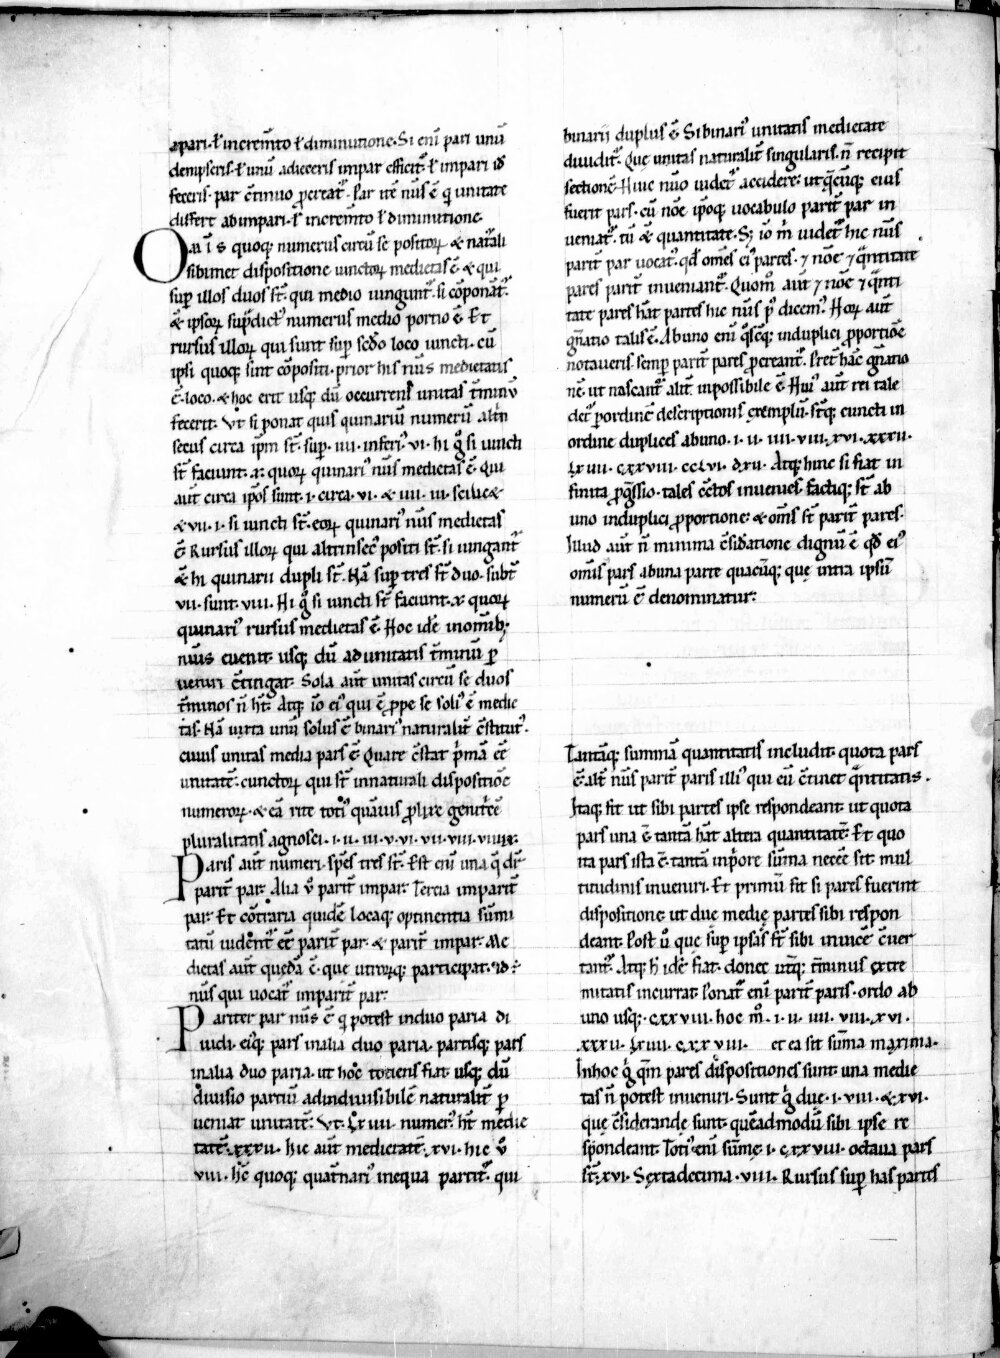 apari· ł increm̄to ł diminutione· Si eni̅ pari unū
dempseris· ł unū adieceris impar efficit̄· ł impari id
feceris· par c̄tinuo p̲creat᷑· Par ite̅ nūs e̅ q̇ unitate
differt abimpari· ł increm̄to ł diminutione·
Om̅is quoq; numerus circū se positoꝝ & nat᷑ali
sibimet dispositione iunctoꝝ medietas e̅· & qui
sup̲ illos duos st̄· qui medio iungunt᷑· si co̅ponāt᷑·
& ipsoꝝ sup̲dictꝰ numerus medio portio e̅· Et
rursus illoꝝ qui sunt sup̲ sc̅do loco iuncti· cū
ipsi quoq; sint co̅positi· prior his nūs medietatis
e̅· loco· & hoc erit usq; dū occurrens unitas t̄minū
fecerit· Vt si ponat quis quinariū numerū alt̄in
secus circa ip̅m st̄· sup̲· iiii· inferiꝰ· vi· hi g̊ si iuncti
st̄ faciunt· x· quoꝝ quinariꝰ nūs medietas e̅· Qui
aut̄ circa ip̅os sunt· i· circa· vi· & iiii· iii· scilic&
& vii· i· si iuncti st̄· eoꝝ quinariꝰ nūs medietas
e̅· Rursus illoꝝ qui altrinsecꝰ positi st̄· si iungant᷑
& hi quinarii dupli st̄· Nā sup̲ tres st̄ duo· subt̄
vii· sunt· viii· Hi g̊ si iuncti st̄ faciunt· x· quoꝝ
quinariꝰ rursus medietas e̅· Hoc ide̅ inom̄ib;
nūis euenit· usq; dū ad unitatis t̄minū p̲
ueniri c̄tingat· Sola aut̄ unitas circū se duos
t̄minos n̄ ht̄· Atq; io̅ eiꝰ qui e̅ p̲pe se soliꝰ e̅ medie
tas· Nā iuxta unū solus e̅ binariꝰ naturalit̄ c̄stitutꝰ·
cuius unitas media pars e̅· Quare c̄stat p̲mā e̅e̅
unitate̅· cunctoꝝ qui st̄ innaturali dispositio̅e
numeroꝝ· & eā rite totiꝰ quāuis p̲lixe genitᷓce̅
pluralitatis agnosci· i· ii· iii· v· vi· vii· viii· viiii·
Paris aut̄ numeri· sp̄es tres st̄· Est eni̅ una q̄ dr̄
parit̄ par· Alia ů parit̄ impar· Tercia imparit̄
par· Et co̅traria quide̅ locaq; optinentia su̅mi
tatū uident᷑ e̅e̅ parit̄ par· & parit̄ impar· Me
dietas aut̄ quędā e̅· que utroꝝq; participat· id·
nūs qui uocat᷑ imparit̄ par·
Pariter par nūs e̅ q̇ potest induo paria di
uidi· eiꝰq; pars inalia duo paria· partisq; pars
inalia duo paria· ut hoc̅ totiens fiat· usq; dū
diuisio partiū adindiuisibile̅ naturalit̄ p̲
ueniat unitate̅· Vt· lxiiii· numerꝰ ht̄ medie
tate̅· xxxii· hic aut̄ medietate̅· xvi· hic ů
viii· hc̄ quoq; quat̄nariꝰ inequa partit᷑· qui
binarii duplus e̅· Si binariꝰ unitatis medietate
diuidit᷑· Quę unitas naturalit̄ singularis· n̄ recipit
sectione̅· Huic nu̅o uidet᷑ accidere· ut q̄cūq; eius
fuerit pars· cū no̅e ip̅oq; uocabulo parit̄ par in
ueniat᷑· tū & quantitate· S; io̅ m̊ uidet᷑ hic nūs
parit̄ par uocat᷑· qd̄ om̅es eiꝰ partes· ⁊ no̅e ⁊ q̄ntitate
pares parit̄ inueniant᷑· Quom̊ aut̄ ⁊ no̅e ⁊ q̄nti
tate pares ha̅t partes hic nūs pꝰ dicemꝰ· Hoꝝ aut̄
gn̅atio talis e̅· Abuno eni̅ q̄scūq; induplici p̲portio̅e
notaueris· semp̲ parit̄ pares p̲creant᷑· Pret̄ ha̅c gn̅atio
ne̅· ut nascant᷑ alit̄ inpossibile e̅· Huiꝰ aut̄ rei tale
dec̅ p̲ordine̅ descriptionis ęxemplū· stq; cuncti in
ordine duplices abuno· i· ii· iiii· viii· xvi· xxxii·
lxiiii· cxxviii· cclvi· dxii· Atq; hinc si fiat in
finita p̲g̊ssio· tales cc̄tos inuenies· factiq; st̄ ab
uno induplici p̲portione· & om̅s st̄ parit̄ pares·
Illud aut̄ n̄ minima c̄sid̄atione dignū e̅ qd̄ eiꝰ
om̅is pars abuna parte quacūq; quę intra ipsū
numerū e̅ denominatur·
Tantāq; summā quantitatis includit· quota pars
e̅· alt̄ nūs parit̄ paris illiꝰ qui eū c̄tinet q̄ntitatis·
Itaq; fit ut sibi partes ipse respondeant· ut quota
pars una e̅ tantā ha̅t altera quantitate̅· Et quo
ta pars ista e̅· tantā inp̲ore su̅ma nece̅e̅ sit· mul
titudinis inueniri· Et primū fit si pares fuerint
dispositione· ut due medię partes sibi respon
deant· Post ů quę sup̲ ipsas st̄ sibi inuice̅ c̄uer
tant᷑· Atq; h̊ ide̅ fiat· donec ut̄q; t̄minus extre
mitatis incurrat· Ponat᷑ eni̅ parit̄ paris· ordo ab
uno usq;· cxxviii· hoc m̊· i· ii· iiii· viii· xvi·
xxxii· lxiiii· cxxviii· et ea sit su̅ma maxima·
Inhoc g̊ q̅m pares dispositiones sunt· una medie
tas n̄ potest inueniri· Sunt g̊ due· i· viii· & xvi·
quę c̄siderandę sunt· quēadmodū sibi ipse re
spondeant· Totiꝰ eni̅ su̅mę· i· cxxviii· octaua pars
st̄· xvi· Sęxtadecima· viii· Rursus sup̲ has partes